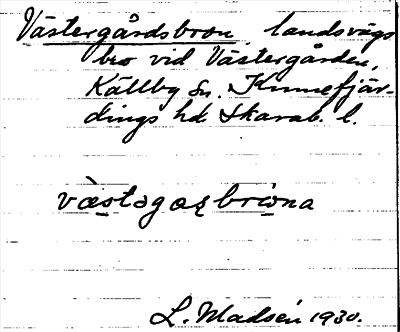 Västergårdsbron, landsvägs
bro vid Västergården,
Källby sn. Kinnefjär-
dings hd Skarab. l.
västəgaʂbriona
L. Madsén 1930.